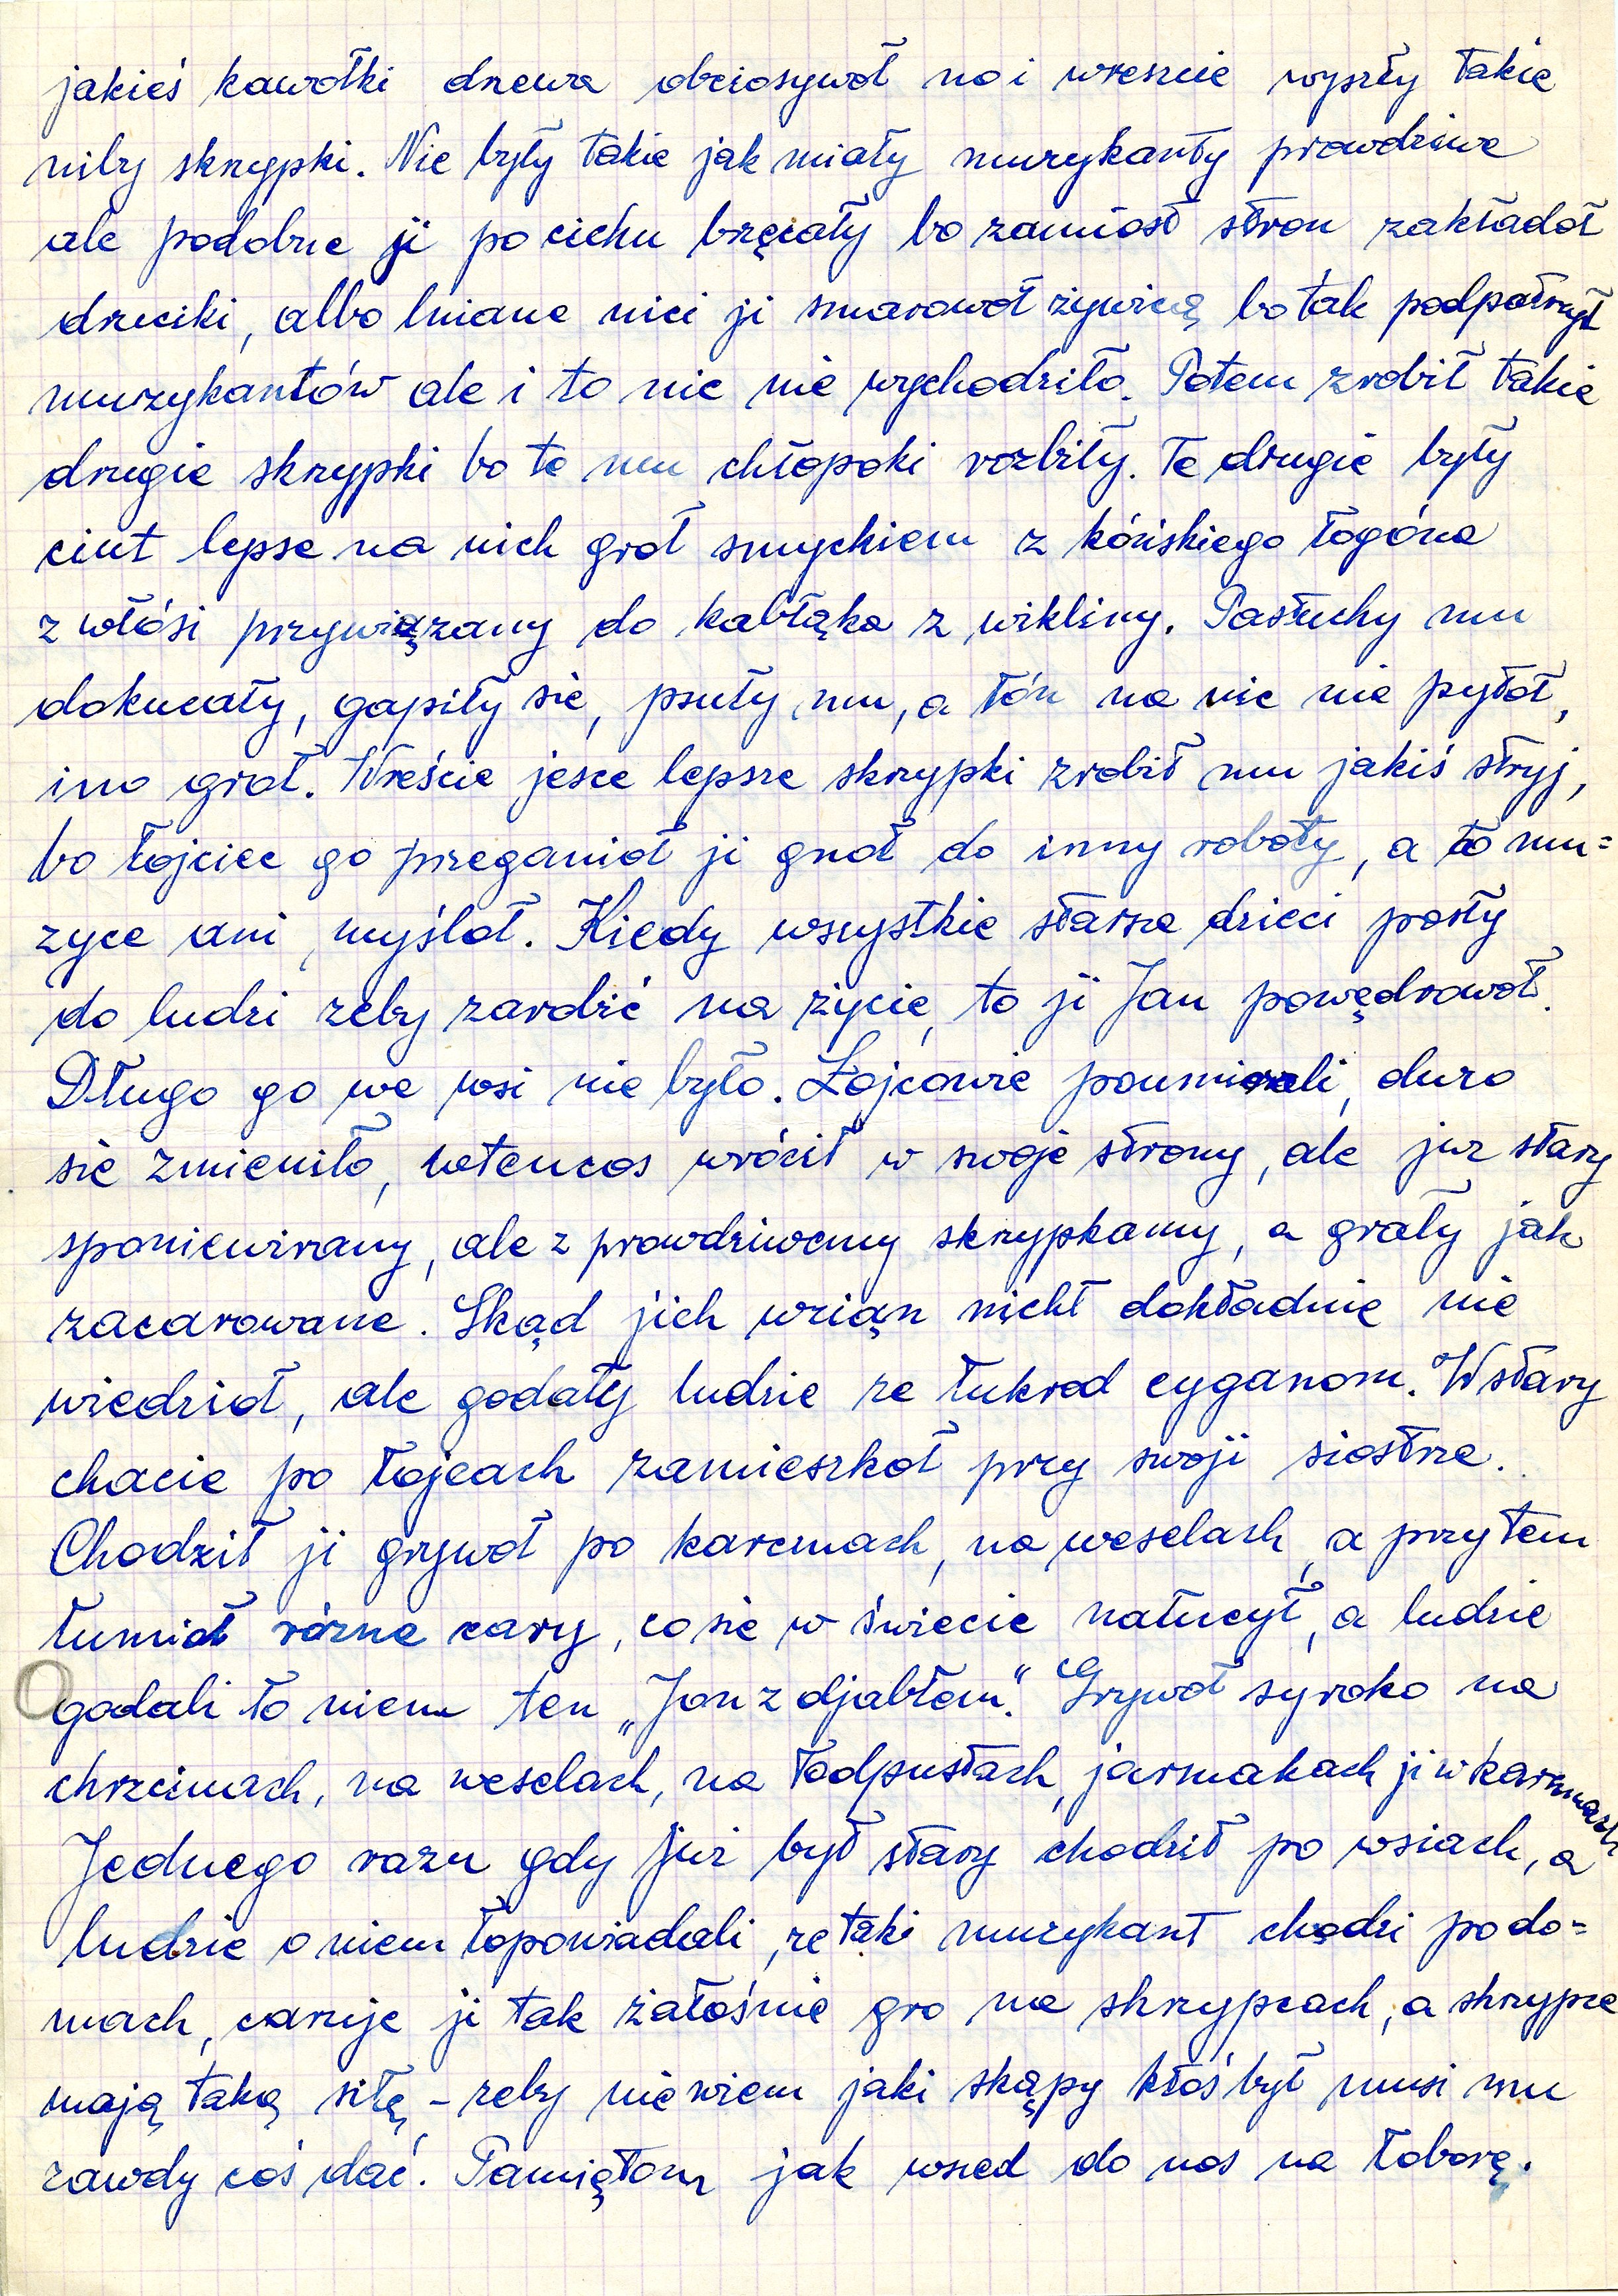 jakieś kawołki drzewa obciosywoł no i wrescie wyszły takie
niby skrzypki. Nie były takie jak miały muzykanty prawdziwe
ale podobne ji po cichu brzęcały bo zamiost stron zakładoł
druciki, albo lniane nici ji smarowoł żywicą bo tak podpatrzył
muzykantów ale i to nic nie wychodziło. Potem zrobił takie
drugie skrzypki bo te mu chłopoki rozbiły. Te drugie były
ciut lepse na nich groł smyckiem z kóńskiego łogóna
z włósi przywiązany do kabłąka z wikliny. Pastuchy mu
dokucały, gapiły sie, psuły mu, a łón na nic nie pytoł,
ino groł. Wreście jesce lepsze skrzypki zrobił mu jakiś stryj,
bo łojciec go przeganioł ji gnoł do inny roboty, a ło mu=
zyce ani myśloł. Kiedy wszystkie starsze dzieci posły
do ludzi zeby zarobić na życie, to ji Jan powędrowoł.
Długo go we wsi nie było. Łojcowie poumirali, duzo
sie zmieniło, wtencos wrócił w swoje strony, ale juz stary
sponiewirany, ale z prowdziwemy skrzypkamy, a grały jak
zacarowane. Skąd jich wziąn nicht dokładnie nie
wiedzioł, ale godały ludzie ze łukrod cyganom. W stary
chacie po łojcach zamieszkoł przy swoji siostrze.
Chodził ji grywoł po karcmach, na weselach, a przy tem
łumioł rózne cary, co sie w świecie nałucył, a ludzie
godali ło niem ten „Jon z djabłem". Grywoł syroko na
chrzcinach, na weselach, na łodpustach, jarmakach ji w karcmach
Jednego razu gdy juz był stary chodził po wsiach, a
ludzie o niem łopowiadali, ze taki muzykant chodzi po do=
mach, caruje ji tak żałośnie gro na skrzypcach, a skrzypce
mają taką siłę – zeby nie wiem jaki skąpy ktoś był musi mu
zawdy coś dać. Pamiętom jak wszed do nos na łoborę.